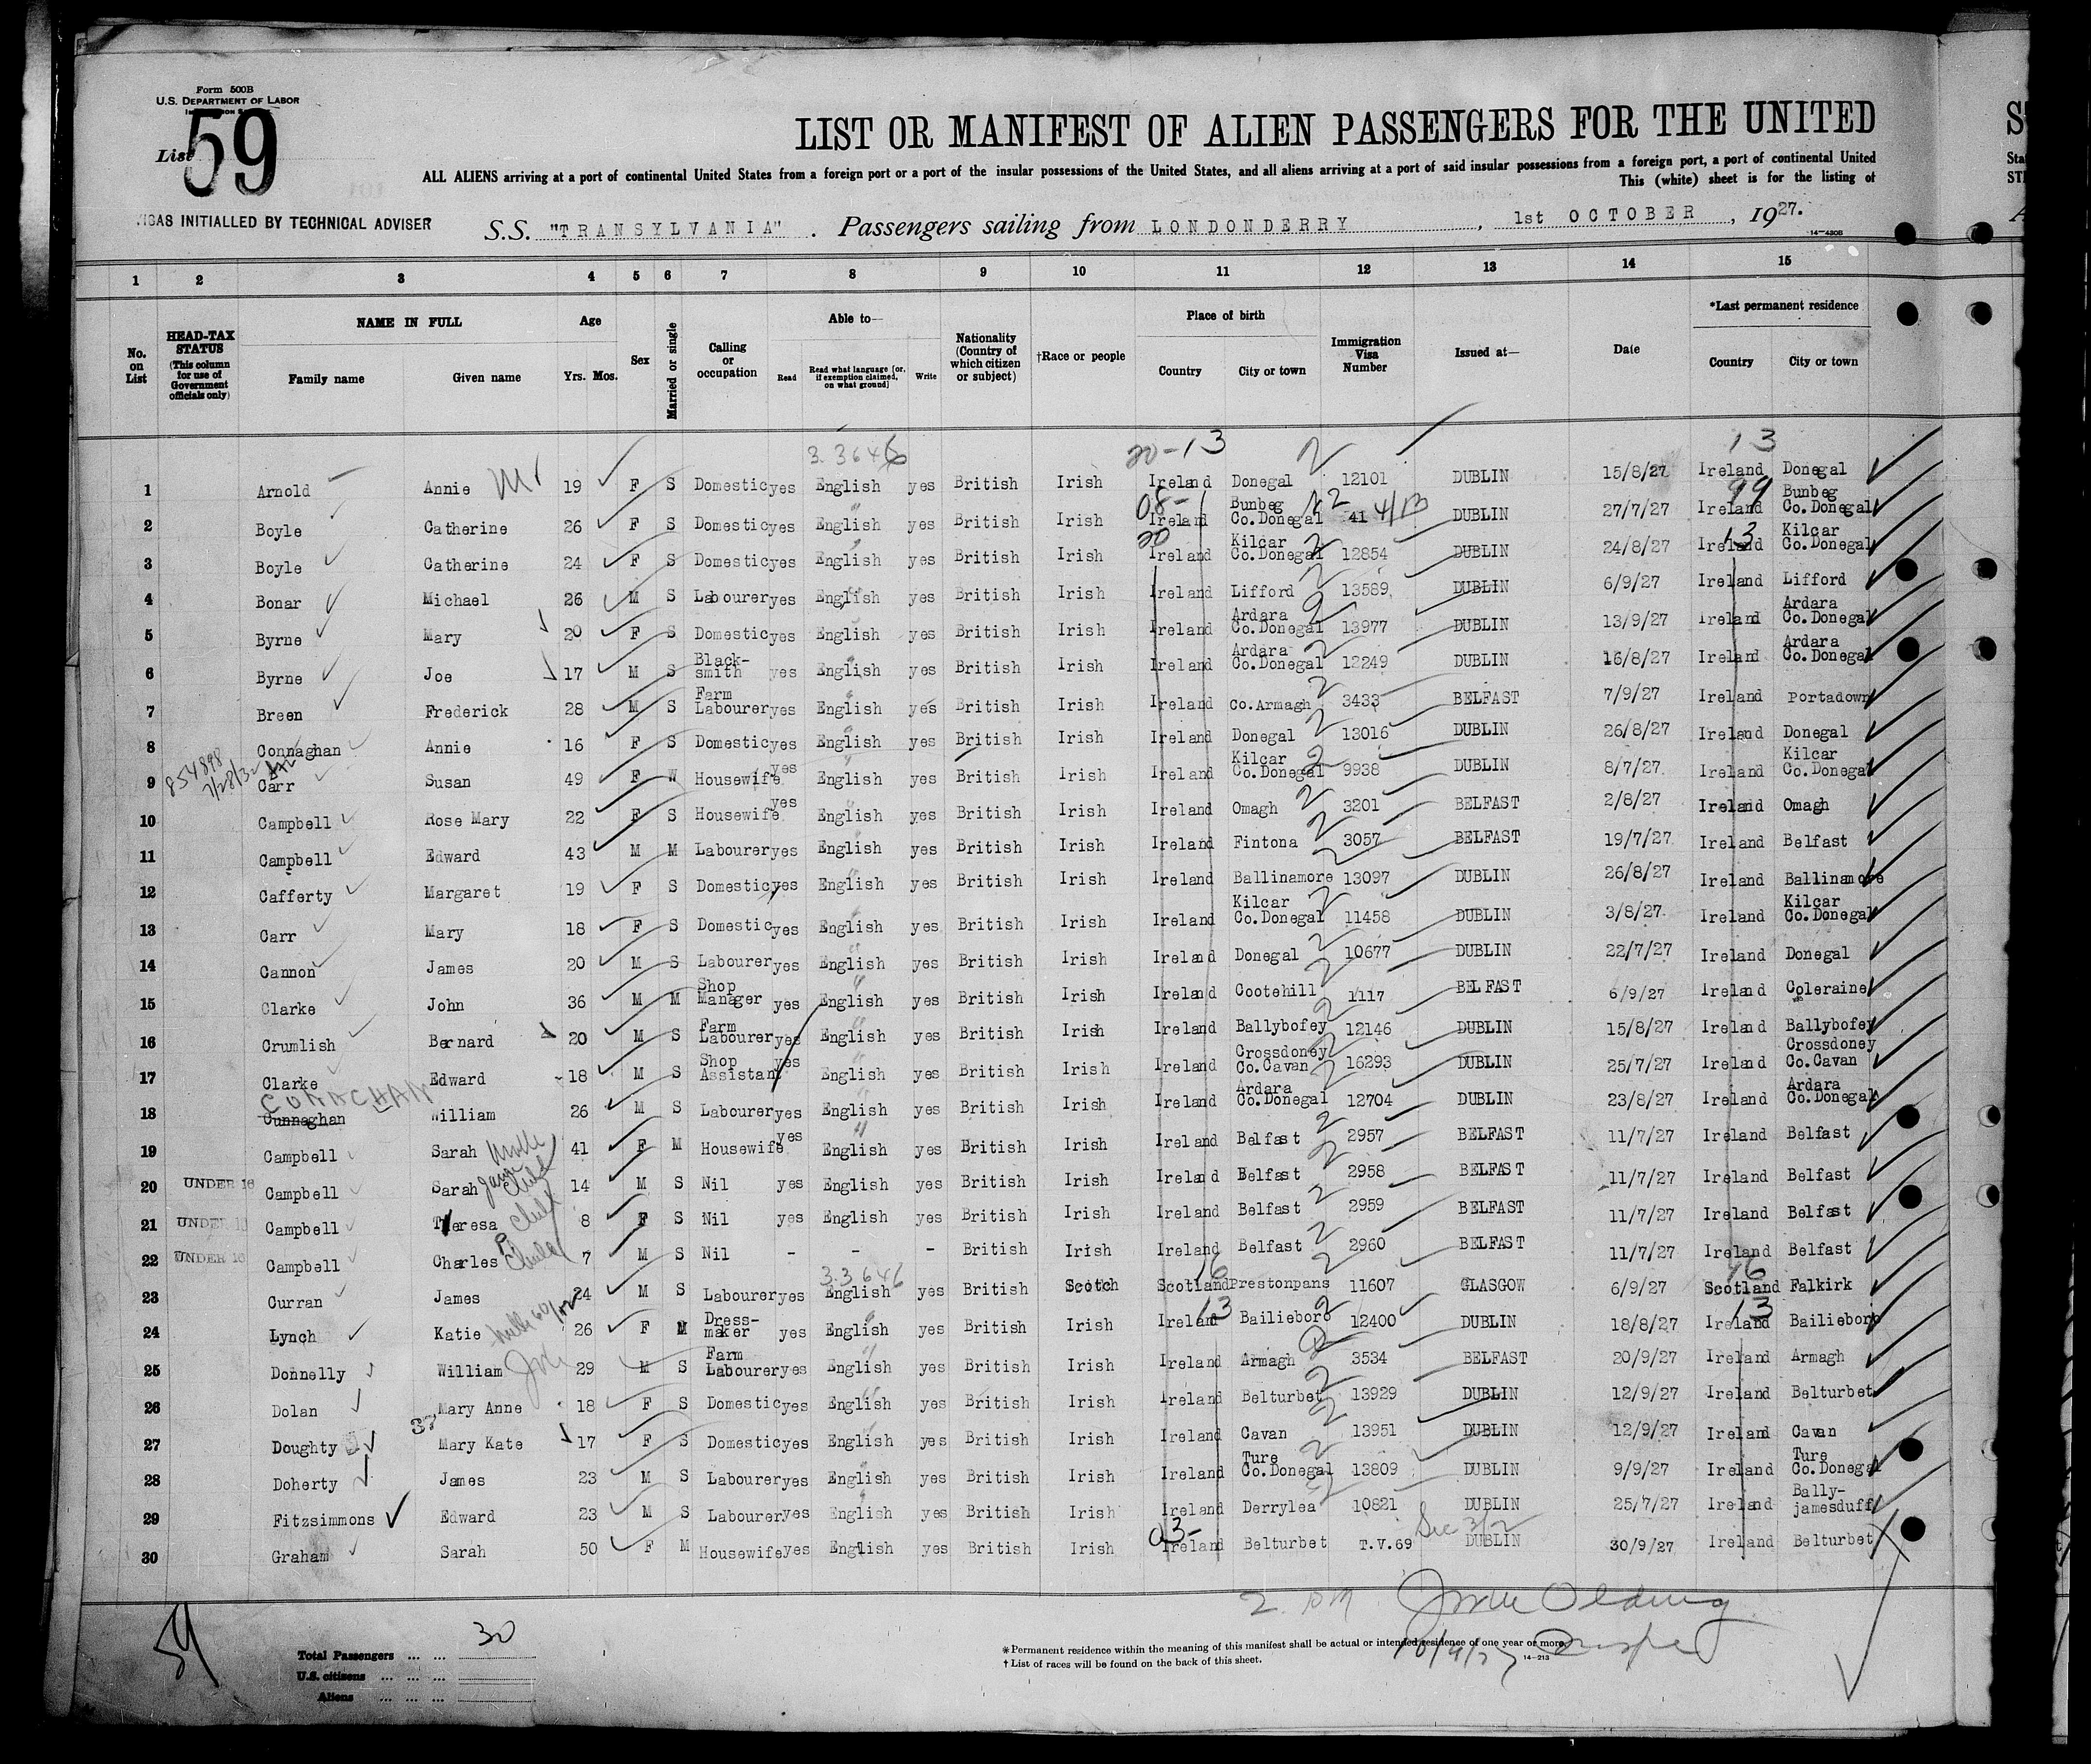 Form 500B
U.S. DEPARTMENT OF LABOR
List 59
LIST OR MANIFEST OF ALIEN PASSENGERS FOR THE UNITED
ALL ALIENS arriving at a port of continental United States from a foreign port or a port of the insular possessions of the United States, and all aliens arriving at a port of said insular possessions from a foreign port, a port of continental United
This (white) sheet is for the listing of
VISAS INITIALLED BY TECHNICAL ADVISER
S.S. "TRANSYLVANIA" . Passengers sailing from LONDONDERRY , 1st OCTOBER , 1927.
14—430B
1 2 3 4 5 6 7 8 9 10 11 12 13 14 15
No. on List HEAD-TAX STATUS (This column for use of Government officials only) NAME IN FULL Family name Given name Age Yrs. Mos. Sex Married or single Calling or occupation Able to— Read Read what language [or, if exemption claimed, on what ground] Write Nationality (Country of which citizen or subject) †Race or people Place of birth Country City or town Immigration Visa Number Issued at— Date *Last permanent residence Country City or town
3.3646 20-13 2 13
1 Arnold Annie 19 F S Domestic yes English yes British Irish Ireland Donegal 12101 DUBLIN 15/8/27 Ireland Donegal
2 Boyle Catherine 26 F S Domestic yes English yes British Irish Ireland Bunbeg Co.Donegal 41 4/13 DUBLIN 27/7/27 Ireland Bunbeg Co.Donegal
3 Boyle Catherine 24 F S Domestic yes English yes British Irish Ireland Kilcar Co.Donegal 12854 DUBLIN 24/8/27 Ireland Kilcar Co.Donegal
4 Bonar Michael 26 M S Labourer yes English yes British Irish Ireland Lifford 13589 DUBLIN 6/9/27 Ireland Lifford
5 Byrne Mary 20 F S Domestic yes English yes British Irish Ireland Ardara Co.Donegal 13977 DUBLIN 13/9/27 Ireland Ardara Co.Donegal
6 Byrne Joe 17 M S Black-smith yes English yes British Irish Ireland Ardara Co.Donegal 12249 DUBLIN 16/8/27 Ireland Ardara Co.Donegal
7 Breen Frederick 28 M S Farm Labourer yes English yes British Irish Ireland Co.Armagh 3433 BELFAST 7/9/27 Ireland Portadown
8 Connaghan Annie 16 F S Domestic yes English yes British Irish Ireland Donegal 13016 DUBLIN 26/8/27 Ireland Donegal
854898 7/28/32
9 Carr Susan 49 F W Housewife yes English yes British Irish Ireland Kilcar Co.Donegal 9938 DUBLIN 8/7/27 Ireland Kilcar Co.Donegal
10 Campbell Rose Mary 22 F S Housewife yes English yes British Irish Ireland Omagh 3201 BELFAST 2/8/27 Ireland Omagh
11 Campbell Edward 43 M M Labourer yes English yes British Irish Ireland Fintona 3057 BELFAST 19/7/27 Ireland Belfast
12 Cafferty Margaret 19 F S Domestic yes English yes British Irish Ireland Ballinamore 13097 DUBLIN 26/8/27 Ireland Ballinamore
13 Carr Mary 18 F S Domestic yes English yes British Irish Ireland Kilcar Co.Donegal 11458 DUBLIN 3/8/27 Ireland Kilcar Co.Donegal
14 Cannon James 20 M S Labourer yes English yes British Irish Ireland Donegal 10677 DUBLIN 22/7/27 Ireland Donegal
15 Clarke John 36 M M Shop Manager yes English yes British Irish Ireland Cootehill 1117 BELFAST 6/9/27 Ireland Coleraine
16 Crumlish Bernard 20 M S Farm Labourer yes English yes British Irish Ireland Ballybofey 12146 DUBLIN 15/8/27 Ireland Ballybofey
17 Clarke Edward 18 M S Shop Assistant yes English yes British Irish Ireland Crossdoney Co.Cavan 16293 DUBLIN 25/7/27 Ireland Crossdoney Co.Cavan
CONACHAN
18 Cunnaghan William 26 M S Labourer yes English yes British Irish Ireland Ardara Co.Donegal 12704 DUBLIN 23/8/27 Ireland Ardara Co.Donegal
19 Campbell Sarah 41 F M Housewife yes English yes British Irish Ireland Belfast 2957 BELFAST 11/7/27 Ireland Belfast
20 UNDER 16 Campbell Sarah Jane Child 14 M S Nil yes English yes British Irish Ireland Belfast 2958 BELFAST 11/7/27 Ireland Belfast
21 UNDER 16 Campbell Theresa Child 8 F S Nil yes English yes British Irish Ireland Belfast 2959 BELFAST 11/7/27 Ireland Belfast
22 UNDER 16 Campbell Charles P Child 7 M S Nil - - - British Irish Ireland Belfast 2960 BELFAST 11/7/27 Ireland Belfast
3.3646 16 46
23 Curran James 24 M S Labourer yes English yes British Scotch Scotland Prestonpans 11607 GLASGOW 6/9/27 Scotland Falkirk
24 Lynch Katie 26 F M Dress-maker yes English yes British Irish Ireland Bailieboro 12400 DUBLIN 18/8/27 Ireland Bailieboro
25 Donnelly William 29 M S Farm Labourer yes English yes British Irish Ireland Armagh 3534 BELFAST 20/9/27 Ireland Armagh
26 Dolan Mary Anne 18 F S Domestic yes English yes British Irish Ireland Belturbet 13929 DUBLIN 12/9/27 Ireland Belturbet
27 Doughty 37 Mary Kate 17 F S Domestic yes English yes British Irish Ireland Cavan 13951 DUBLIN 12/9/27 Ireland Cavan
28 Doherty James 23 M S Labourer yes English yes British Irish Ireland Ture Co.Donegal 13809 DUBLIN 9/9/27 Ireland Ture Co.Donegal
29 Fitzsimmons Edward 23 M S Labourer yes English yes British Irish Ireland Derrylea 10821 DUBLIN 25/7/27 Ireland Bally-jamesduff
30 Graham Sarah 50 F M Housewife yes English yes British Irish Ireland Belturbet T.V.69 Sec 3/2 DUBLIN 30/9/27 Ireland Belturbet
59
Total Passengers ... ... 30
U.S. citizens ... ... ...
Aliens ... ... ...
*Permanent residence within the meaning of this manifest shall be actual or intended residence of one year or more.
† List of races will be found on the back of this sheet.
14—213